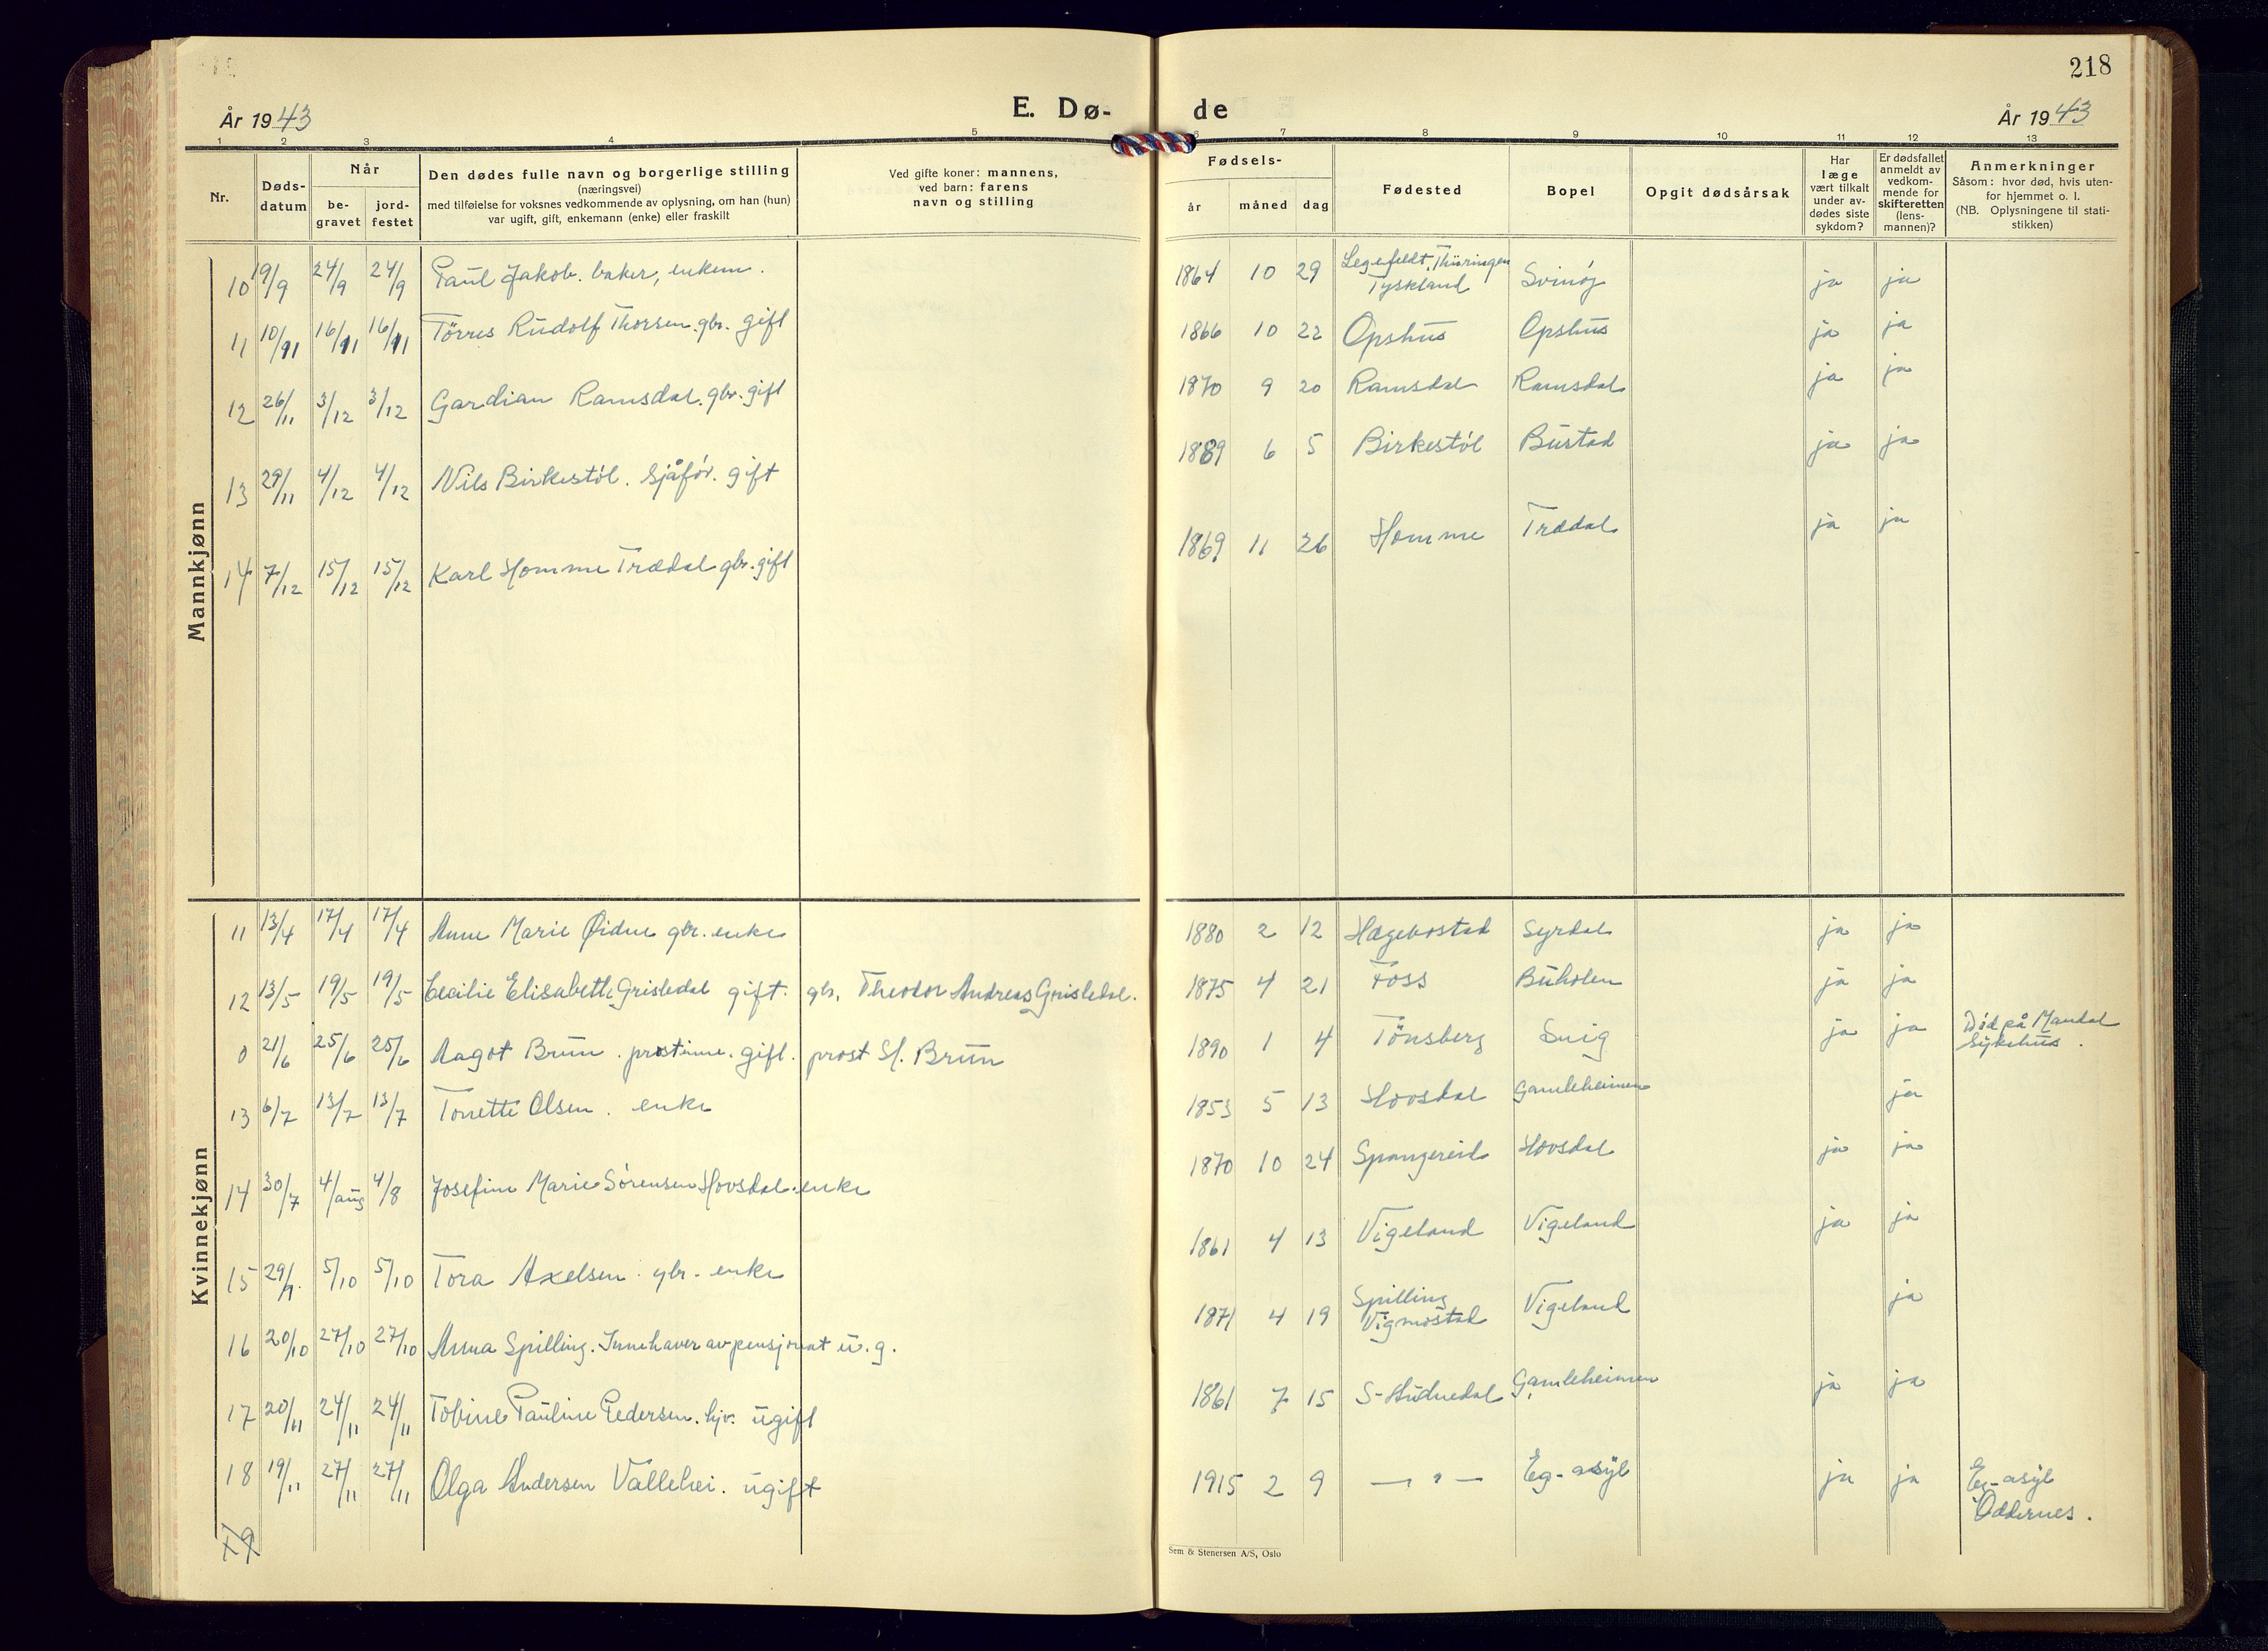 218
År 1943
E. Dø-
de
År 1943
1 2 3 4 5 6 7 8 9 10 11 12 13
Nr.
Døds-
datum
Når
be-
gravet
jord-
festet
Den dødes fulle navn og borgerlige stilling
(næringsvei)
med tilføielse for voksnes vedkommende av oplysning, om han (hun)
var ugift, gift, enkemann (enke) eller fraskilt
Ved gifte koner: mannens,
ved barn: farens
navn og stilling
Fødsels-
år måned dag
Fødested
Bopel
Opgit dødsårsak
Har
læge
vært tilkalt
under av-
dødes siste
sykdom?
Er dødsfallet
anmeldt av
vedkom-
mende for
skifteretten
(lens-
mannen)?
Anmerkninger
Såsom: hvor død, hvis uten-
for hjemmet o. l.
(NB. Oplysningene til stati-
stikken)
Mannkjønn
10 19/9 24/9 24/9 Paul Jakob. baker, enkem. 1864 10 29 Legefeldt, Thüringen
Tyskland Svinøy ja ja
11 10/11 16/11 16/11 Tørres Rudolf Thorsen. gbr. gift 1866 10 22 Opshus Opshus ja ja
12 26/11 3/12 3/12 Gardian Ramsdal. gbr. gift 1870 9 20 Ramsdal Ramsdal ja ja
13 29/11 4/12 4/12 Nils Birkestøl. sjåfør. gift 1889 6 5 Birkestøl Bustad ja ja
14 7/12 15/12 15/12 Karl Homme Trædal gbr. gift 1869 11 26 Homme Trædal ja ja
Kvinnekjønn
11 13/4 17/4 17/4 Anne Marie Øidne gbr. enke 1880 2 12 Hægebostad Syrdal ja ja
12 13/5 19/5 19/5 Cecilie Elisabeth Grisledal gift. gbr. Theodor Andreas Grisledal. 1875 4 21 Foss Buholen ja ja
0 21/6 25/6 25/6 Aagot Brun. prostinne. gift. prost H. Brun 1890 1 4 Tönsberg Snig ja ja Död på Mandal
Sykehus.
13 6/7 13/7 13/7 Tonette Olsen. enke 1853 5 13 Hovsdal Gamleheimen ja
14 30/7 4/aug 4/8 Josefine Marie Sørensen Hovsdal. enke 1870 10 24 Spangereid Hovsdal ja ja
15 29/9. 5/10 5/10 Tora Axelsen. gbr. enke 1861 4 13 Vigeland Vigeland ja ja
16 20/10 27/10 27/10 Anna Spilling. Innehaver av pensjonat u. g. 1871 4 19 Spilling
Vigmostad Vigeland ja
17 20/11 24/11 24/11 Tobine Pauline Pedersen. hjv. ugift 1861 7 15 S-Audnedal Gamleheimen ja ja
18 19/11 27/11 27/11 Olga Andersen Vallehei. ugift 1915 2 9 — " — Eg-asyl ja ja Eg-asyl
Oddernes.
19
Sem & Stenersen A/S, Oslo